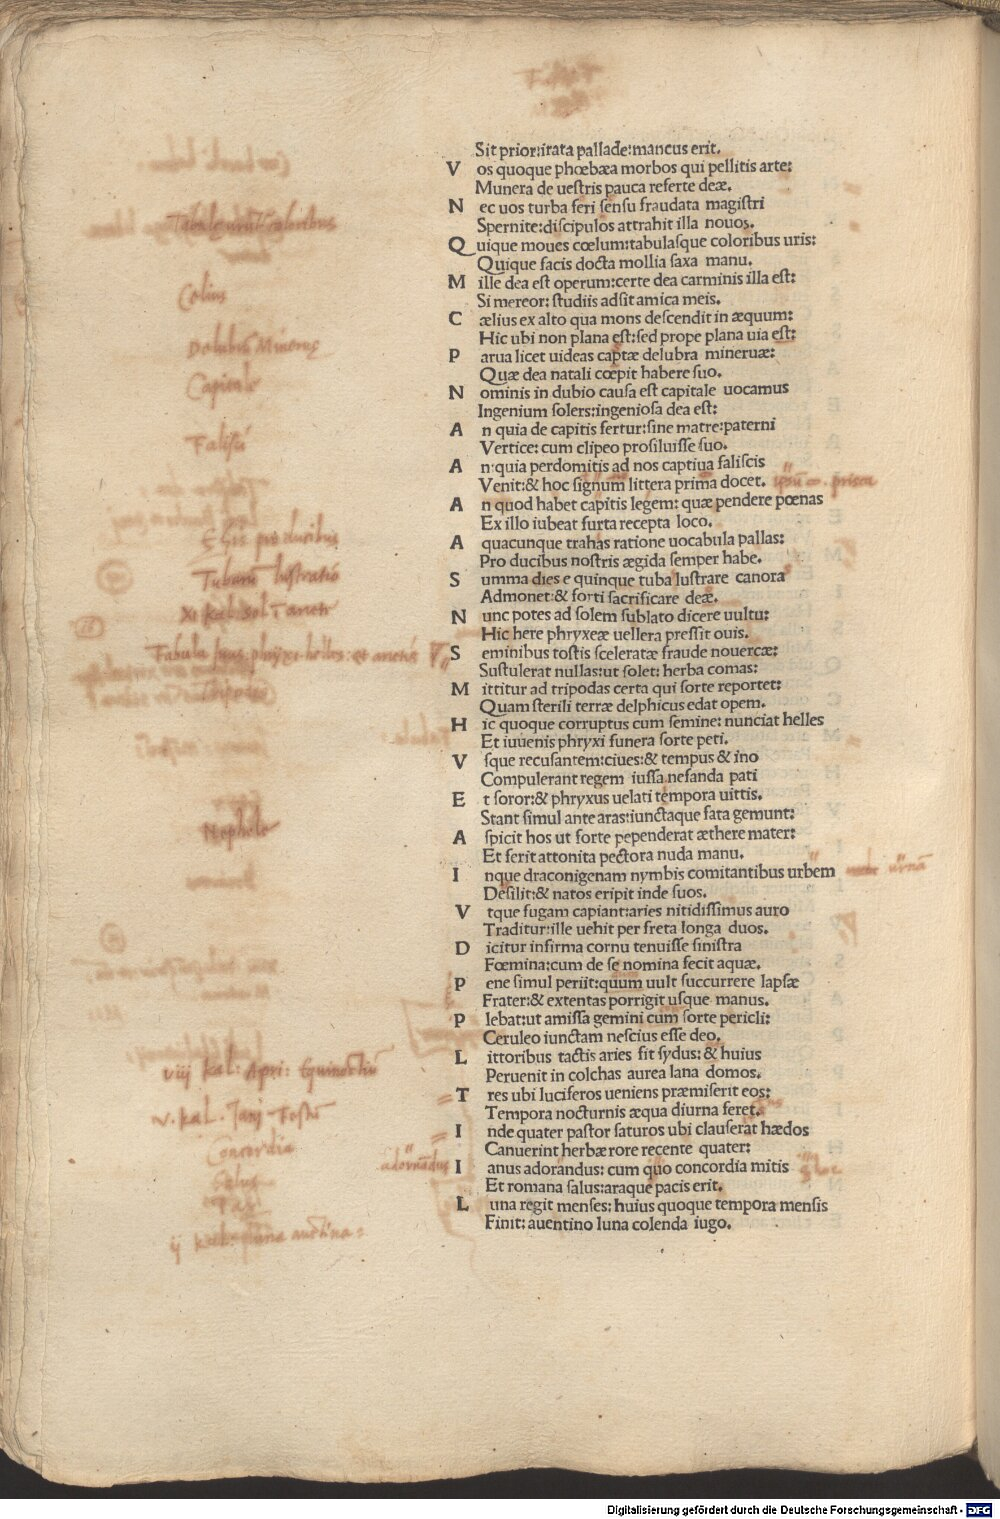 Sit prior:irata pallade:mancus erit.
V os quoque phœbæa morbos qui pellitis arte:
Munera de uestris pauca referte deæ.
N ec uos turba feri sensu fraudata magistri
Spernite:discipulos attrahit illa nouos.
Q uique moues cœlum:tabulasque coloribus uris:
Quique facis docta mollia saxa manu.
M ille dea est operum:certe dea carminis illa est:
Si mereor: studiis adsit amica meis.
C ælius ex alto qua mons descendit in æquum:
Hic ubi non plana est:sed prope plana uia est:
P arua licet uideas captæ delubra mineruæ:
Quæ dea natali cœpit habere suo.
N ominis in dubio causa est capitale uocamus
Ingenium solers:ingeniosa dea est:
A n quia de capitis fertur:sine matre:paterni
Vertice: cum clipeo prosiluisse suo.
A n:quia perdomitis ad nos captiua faliscis
Venit:& hoc signum littera prima docet. prisca
A n quod habet capitis legem: quæ pendere pœnas
Ex illo iubeat furta recepta loco.
A quacunque trahas ratione uocabula pallas:
Pro ducibus nostris ægida semper habe.
S umma dies e quinque tuba lustrare canora
Admonet:& forti sacrificare deæ.
N unc potes ad solem sublato dicere uultu:
Hic here phryxeæ uellera pressit ouis.
S eminibus tostis sceleratæ fraude nouercæ:
Sustulerat nullas:ut solet: herba comas:
M ittitur ad tripodas certa qui sorte reportet:
Quam sterili terræ delphicus edat opem.
H ic quoque corruptus cum semine: nunciat helles
Et iuuenis phryxi funera sorte peti.
V sque recusantem:ciues:& tempus & ino
Compulerant regem iussa nefanda pati
E t soror:& phryxus uelati tempora uittis.
Stant simul ante aras:iunctaque fata gemunt:
A spicit hos ut forte pependerat æthere mater:
Et ferit attonita pectora nuda manu.
I nque draconigenam nymbis comitantibus urbem
Desilit:& natos eripit inde suos.
V tque fugam capiant:aries nitidissimus auro
Traditur:ille uehit per freta longa duos.
D icitur infirma cornu tenuisse sinistra
Fœmina:cum de se nomina fecit aquæ.
P ene simul periit:quum uult succurrere lapsæ
Frater:& extentas porrigit usque manus.
P lebat:ut amissa gemini cum sorte pericli:
Ceruleo iunctam nescius esse deo.
L ittoribus tactis aries fit sydus: & huius
Peruenit in colchas aurea lana domos.
T res ubi luciferos ueniens præmiserit eos:
Tempora nocturnis æqua diurna feret.
I nde quater pastor saturos ubi clauserat hædos
Canuerint herbæ rore recente quater:
I anus adorandus: cum quo concordia mitis
Et romana salus:araque pacis erit.
L una regit menses: huius quoque tempora mensis
Finit: auentino luna colenda iugo.
Celius
Delubrũ Mineruę
Capitale
Falisci
Nephele
viij kal: Apri: Equinoctiũ
Concordia
Salus
Pax
Digitalisierung gefördert durch die Deutsche Forschungsgemeinschaft - DFG